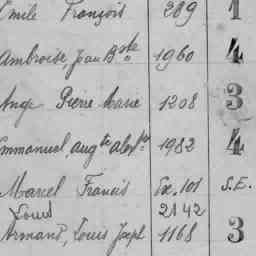 Emile François 289 1
Ambroise, Jean Bte 1960 4
Ange Pierre Marie 1208 3
Emmanuel, augte alexre 1982 4
Marcel Francis Ex. 101 S.E.
Louis 2142
Armand, Louis Joseph 1168 3